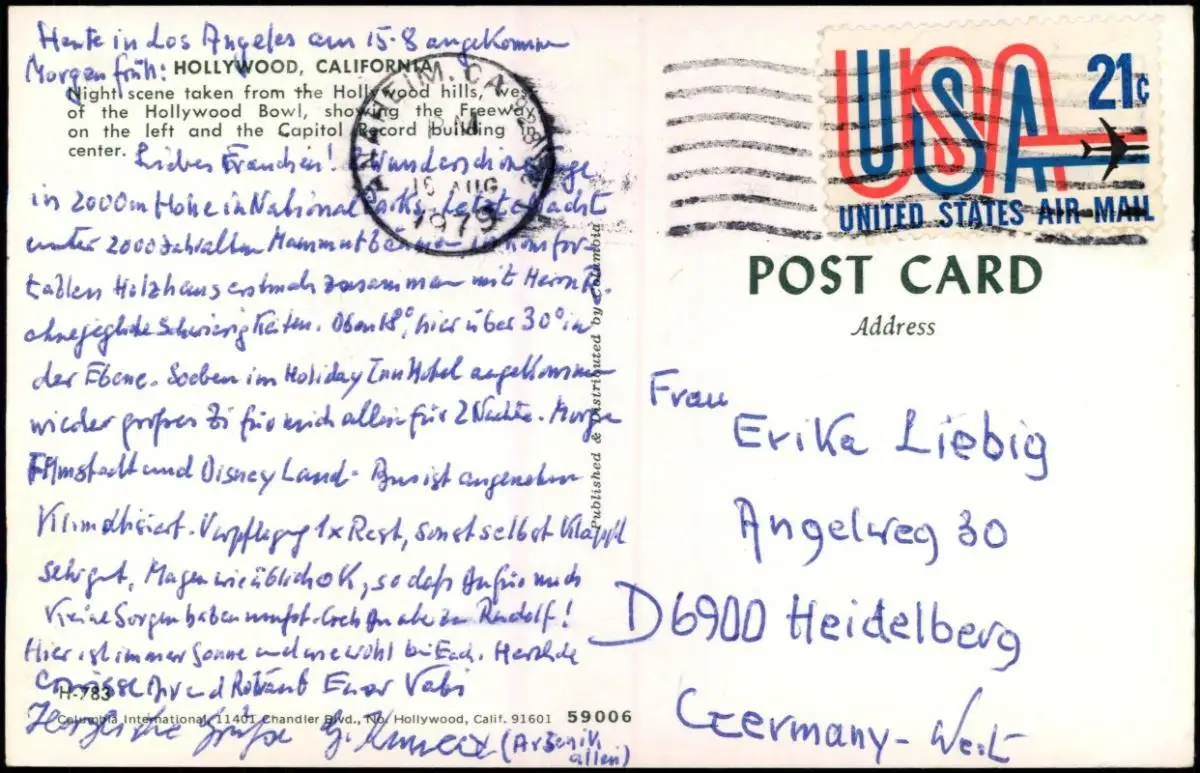 Heute in Los Angeles am 15-8 angekommen
Morgen früh:
HOLLYWOOD, CALIFORNIA
Night scene taken from the Hollywood hills, west
of the Hollywood Bowl, showing the Freeway
on the left and the Capitol Record building in
center.
Liebes Frauchen! Wunderschöne Tage
in 2000m Höhe in National Parks. Letzte Nacht
unter 2000 Jahr alten Mammutbäumen in komfor
tablen Holzhaus erstmals zusammen mit Herrn R.
ohne jegliche Schwierigkeiten. Oben 18°, hier über 30° in
der Ebene. Soeben im Holiday Inn Hotel angekommen
wieder großes Zi für mich allein für 2 Nächte. Morgen
Filmstadt und Disney Land. Bus ist angenehm
Klimatisiert. Verpflegung 1x Rest, sonst selbst klappt
sehr gut, Magen wie üblich OK, so daß für mich
Keine Sorgen haben mußt. Rudolf!
Hier ist immer Sonne und wie wohl bei Euch. Herzliche
Grüsse Dir und Euer Vati
H-783
Columbia International, 11401 Chandler Blvd., No. Hollywood, Calif. 91601
59006
Herzliche Grüße
Published & Distributed by Columbia
ANAHEIM, CA
16 AUG
1979
USA
21c
UNITED STATES AIR MAIL
POST CARD
Address
Frau
Erika Liebig
Angelweg 30
D6900 Heidelberg
Germany - West